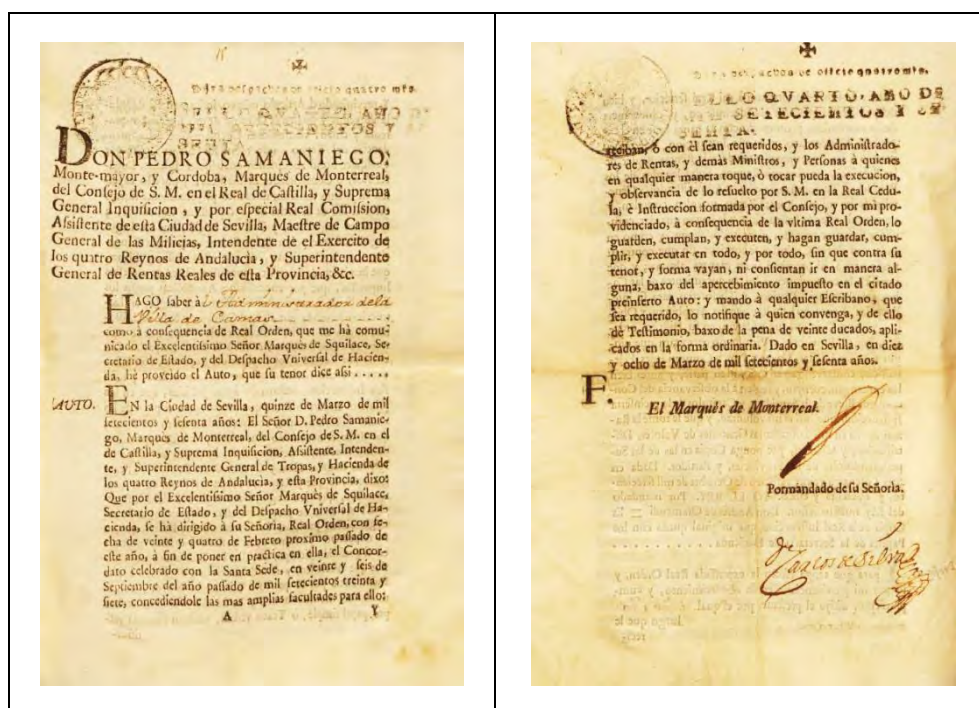 Para despachos de oficio quatro mrs.
SELLO QVARTO, AÑO DE
SETECIENTOS Y SE-
SENTA.
DON PEDRO SAMANIEGO,
Monte-mayor, y Cordoba, Marquès de Monterreal,
del Consejo de S. M. en el Real de Castilla, y Suprema
General Inquisicion, y por especial Real Comission,
Assistente de esta Ciudad de Sevilla, Maestre de Campo
General de las Milicias, Intendente de el Exercito de
los quatro Reynos de Andalucia, y Superintendente
General de Rentas Reales de esta Provincia, &c.
HAGO saber à el Administrador de la
Villa de Camas
como à consequencia de Real Orden, que me hà comu-
nicado el Excelentissimo Señor Marquès de Squilace, Se-
cretario de Estado, y del Despacho Vniversal de Hacien-
da, hè proveido el Auto, que su tenor dice assi . . . .
AUTO. EN la Ciudad de Sevilla, quinze de Marzo de mil
setecientos y sesenta años: El Señor D. Pedro Samanie-
go, Marquès de Monterreal, del Consejo de S. M. en el
de Castilla, y Suprema Inquisicion, Assistente, Intenden-
te, y Superintendente General de Tropas, y Hacienda de
los quatro Reynos de Andalucia, y esta Provincia, dixo:
Que por el Excelentissimo Señor Marquès de Squilace,
Secretario de Estado, y del Despacho Vniversal de Ha-
cienda, se hà dirigido à su Señoria, Real Orden, con fe-
cha de veinte y quatro de Febrero proximo passado de
este año, à fin de poner en practica en ella, el Concor-
dato celebrado con la Santa Sede, en veinte y seis de
Septiembre del año passado de mil setecientos treinta y
siete, concediendole las mas amplias facultades para ello:
A Y
Para despachos de oficio quatro mrs.
SELLO QVARTO, AÑO DE
SETECIENTOS Y SE-
SENTA.
reciban, ò con èl sean requeridos, y los Administrado-
res de Rentas, y demàs Ministros, y Personas à quienes
en qualquier manera toque, ò tocar pueda la execucion,
y observancia de lo resuelto por S. M. en la Real Cedu-
la, è Instruccion formada por el Consejo, y por mi pro-
videnciado, à consequencia de la vltima Real Orden, lo
guarden, cumplan, y executen, y hagan guardar, cum-
plir, y executar en todo, y por todo, sin que contra su
tenor, y forma vayan, ni consientan ir en manera al-
guna, baxo del apercebimiento impuesto en el citado
preinserto Auto: y mando à qualquier Escribano, que
sea requerido, lo notifique à quien convenga, y de ello
dè Testimonio, baxo de la pena de veinte ducados, apli-
cados en la forma ordinaria. Dado en Sevilla, en diez
y ocho de Marzo de mil setecientos y sesenta años.
F.
El Marquès de Monterreal.
Por mandado de su Señoria.